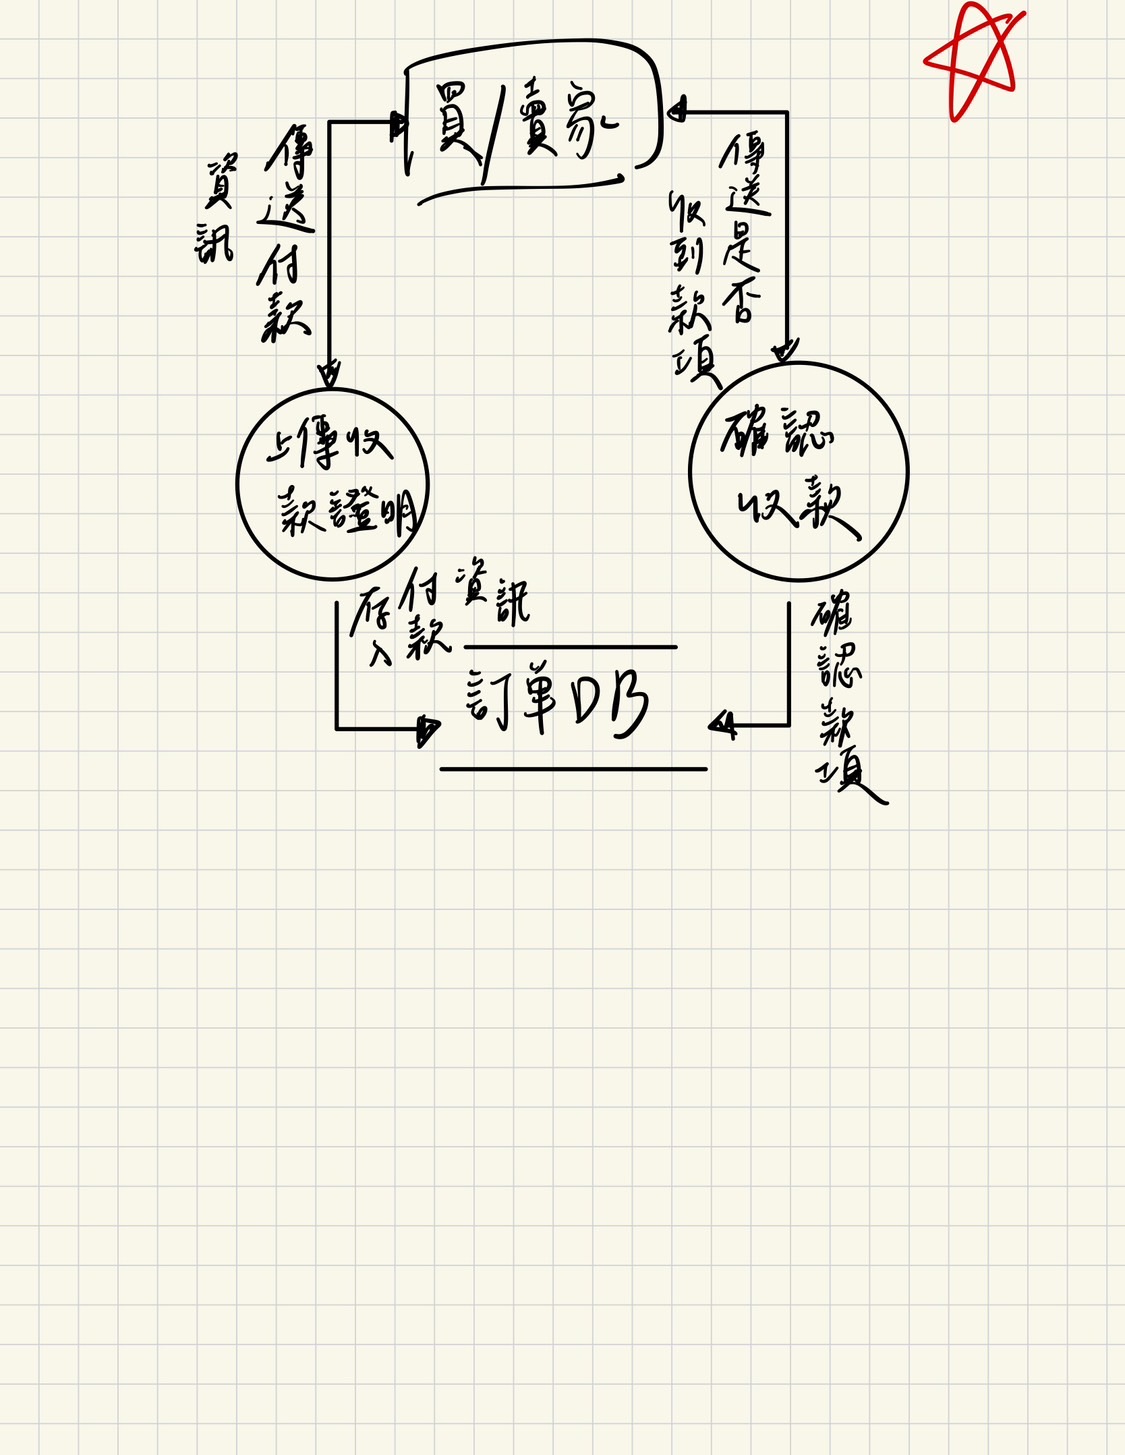 買/賣家
傳送付款
資訊
傳送是否
收到款項
上傳收
款證明
確認
收款
存入
付款
資訊
訂單DB
確認款項